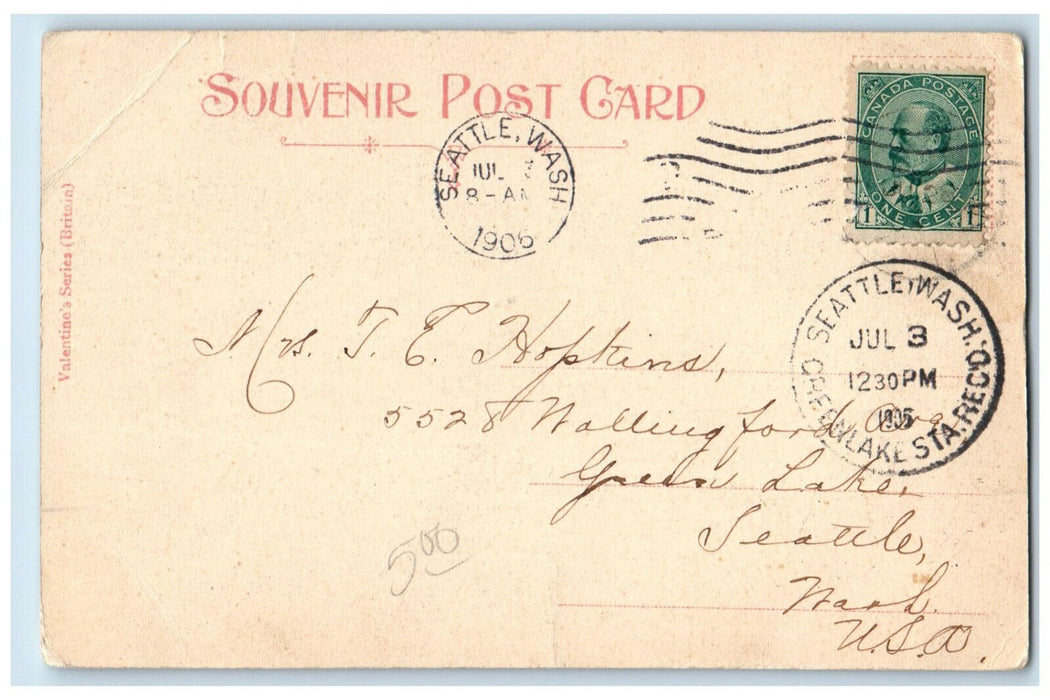 SOUVENIR POST CARD
Valentine's Series (Britain)
SEATTLE, WASH
JUL 3
8-AM
1906
CANADA POSTAGE
1 ONE CENT 1
SEATTLE, WASH.
JUL 3
1230 PM
GREENLAKE STA. REC'D.
Mrs. T. E. Hopkins,
5528 Wallingford Ave
Green Lake,
Seattle,
Wash.
U.S.A.
5.00